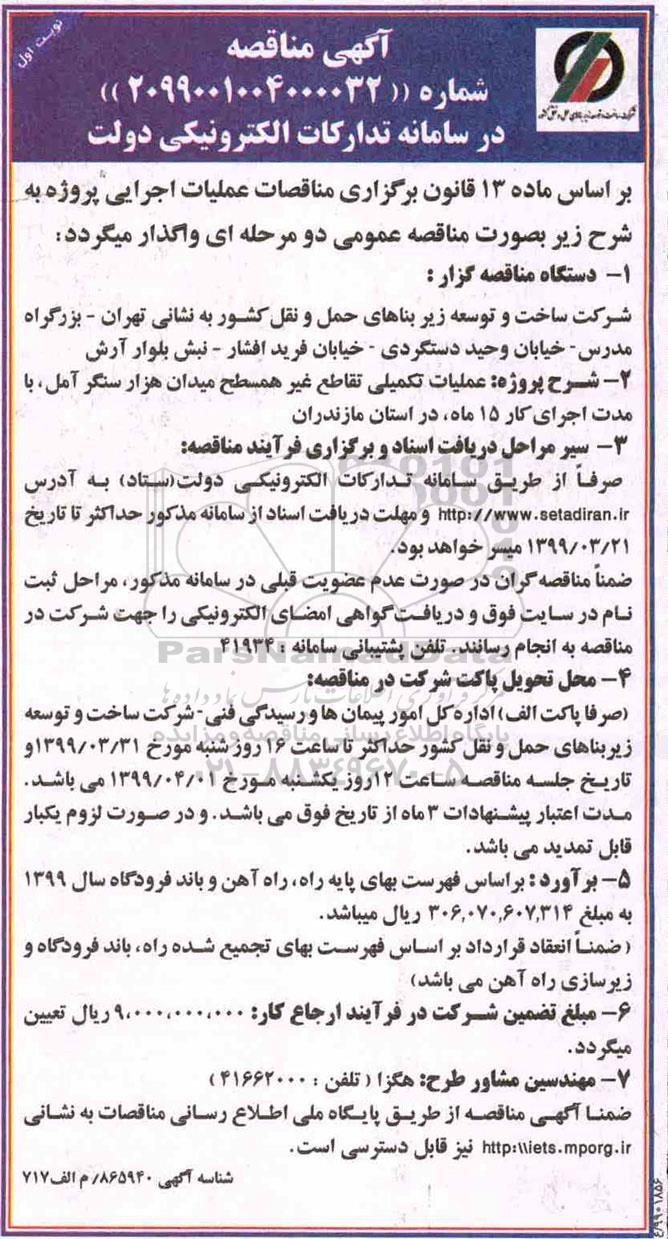 نوبت اول
آگهی مناقصه
شماره (( ۲۰۹۹۰۰۱۰۰۴۰۰۰۰۳۲ ))
در سامانه تدارکات الکترونیکی دولت
شرکت ساخت و توسعه زیربناهای حمل و نقل کشور
بر اساس ماده ۱۳ قانون برگزاری مناقصات عملیات اجرایی پروژه به
شرح زیر بصورت مناقصه عمومی دو مرحله ای واگذار میگردد:
۱- دستگاه مناقصه گزار :
شرکت ساخت و توسعه زیر بناهای حمل و نقل کشور به نشانی تهران - بزرگراه
مدرس- خیابان وحید دستگردی - خیابان فرید افشار - نبش بلوار آرش
۲- شرح پروژه: عملیات تکمیلی تقاطع غیر همسطح میدان هزار سنگر آمل، با
مدت اجرای کار ۱۵ ماه، در استان مازندران
۳- سیر مراحل دریافت اسناد و برگزاری فرآیند مناقصه:
صرفاً از طریق سامانه تدارکات الکترونیکی دولت(ستاد) به آدرس
http://www.setadiran.ir و مهلت دریافت اسناد از سامانه مذکور حداکثر تا تاریخ
۱۳۹۹/۰۳/۲۱ میسر خواهد بود.
ضمناً مناقصه گران در صورت عدم عضویت قبلی در سامانه مذکور، مراحل ثبت
نام در سایت فوق و دریافت گواهی امضای الکترونیکی را جهت شرکت در
مناقصه به انجام رسانند. تلفن پشتیبانی سامانه : ۴۱۹۳۴
ParsNamadData
۴- محل تحویل پاکت شرکت در مناقصه:
(صرفا پاکت الف) اداره کل امور پیمان ها و رسیدگی فنی- شرکت ساخت و توسعه
پایگاه اطلاع رسانی مناقصه و مزایده
زیربناهای حمل و نقل کشور حداکثر تا ساعت ۱۶ روز شنبه مورخ ۱۳۹۹/۰۳/۳۱و
۰۲۱-۸۸۳۴۹۶۷۰-۵
تاریخ جلسه مناقصه ساعت ۱۲روز یکشنبه مورخ ۱۳۹۹/۰۴/۰۱ می باشد.
مدت اعتبار پیشنهادات ۳ ماه از تاریخ فوق می باشد. و در صورت لزوم یکبار
قابل تمدید می باشد.
۵- برآورد : براساس فهرست بهای پایه راه، راه آهن و باند فرودگاه سال ۱۳۹۹
به مبلغ ۳۰۶,۰۷۰,۶۰۷,۳۱۴ ریال میباشد.
( ضمناً انعقاد قرارداد بر اساس فهرست بهای تجمیع شده راه، باند فرودگاه و
زیرسازی راه آهن می باشد)
۶- مبلغ تضمین شرکت در فرآیند ارجاع کار: ۹,۰۰۰,۰۰۰,۰۰۰ ریال تعیین
میگردد.
۷- مهندسین مشاور طرح: هگزا ( تلفن : ۴۱۶۶۲۰۰۰ )
ضمنا آگهی مناقصه از طریق پایگاه ملی اطلاع رسانی مناقصات به نشانی
http:\\iets.mporg.ir نیز قابل دسترسی است.
شناسه آگهی ۸۶۵۹۴۰/ م الف۷۱۷